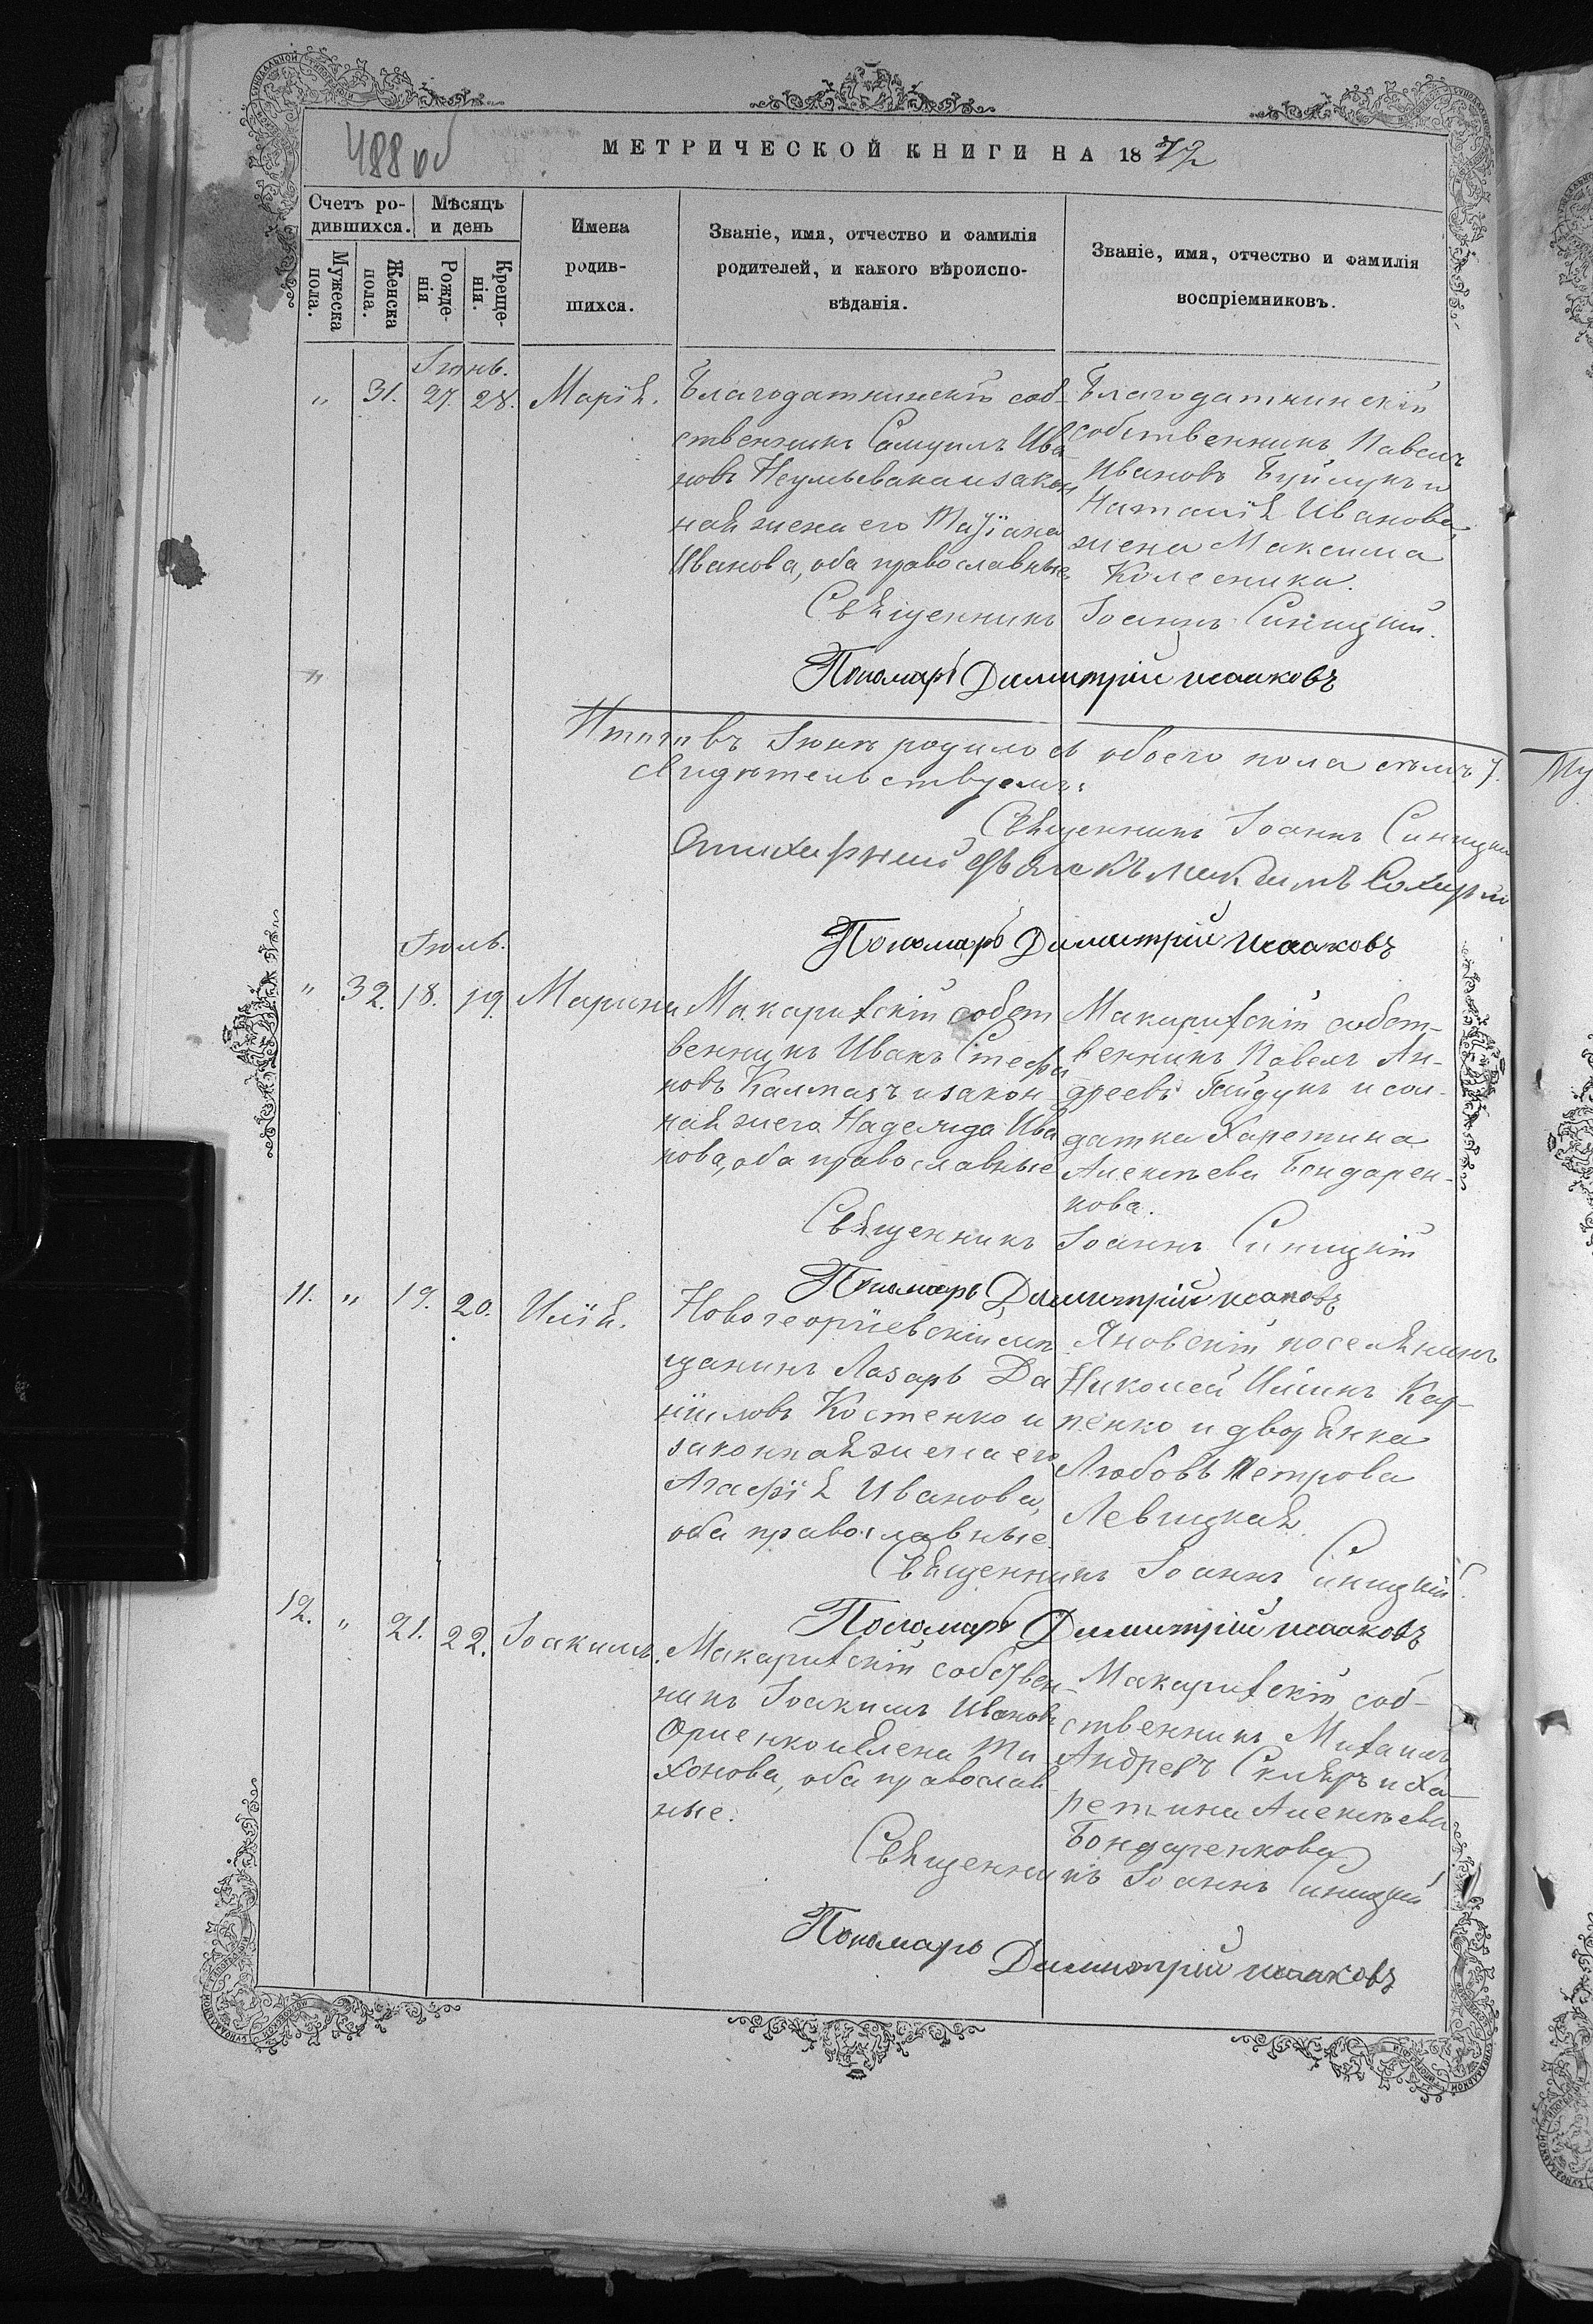 488 об
МЕТРИЧЕСКОЙ КНИГИ НА 1872
Счетъ ро-
дившихся.
Мѣсяцъ
и день
Мужеска
пола.
Женска
пола.
Рожде-
нія
Креще-
нія.
Имена
родив-
шихся.
Званіе, имя, отчество и фамилія
родителей, и какого вѣроиспо-
вѣданія.
Званіе, имя, отчество и фамилія
воспріемниковъ.
Іюнь.
" 31. 27. 28. Марія.
Благодатнинскій соб-
ственникъ Самуилъ Ива
новъ и закон
ная жена его Татіана
Иванова, оба православные.
Благодатнинскій
собственникъ Павелъ
Ивановъ и
Наталія Иванова,
жена Максима
Колесника.
Священникъ Іоаннъ Синицкій.
Пономарь Димитрій Исааковъ
Итого въ Іюнѣ родилось обоего пола семь 7.
свидѣтельствуемъ:
Священникъ Іоаннъ Синицкій
Стихарный дьячекъ
Пономарь Димитрій Исааковъ
Іюль.
" 32. 18. 19. Марина
Макарихскій собст
венникъ Иванъ Стефа
новъ Калмазъ и закон
ная ж его Надежда Ива
нова, оба православные
Макарихскій собст-
венникъ Павелъ Ан-
дреевъ Гайдукъ и сол-
датка Харетина
Алексѣева Бондарен-
кова.
Священникъ Іоаннъ Синицкій
Пономарь Димитрій Исааковъ
11. " 19. 20. Илія.
Новогеоргіевскій мѣ
щанинъ Лазарь Да
ніиловъ Костенко и
законная жена его
Агафія Иванова,
оба православные.
Яновскій поселянинъ
Николай Ильинъ Кар-
пенко и дворянка
Любовь Петрова
Левицкая.
Священникъ Іоаннъ Синицкій.
Пономарь Димитрій Исааковъ
12. " 21. 22. Іоакимъ.
Макарихскій собствен-
никъ Іоакимъ Ивановъ
и Елена Ти-
хонова, оба православ-
ные.
Макарихскій соб-
ственникъ Михаилъ
Андреевъ Скляръ и Ха-
ретина Алексѣева
Бондаренкова
Священникъ Іоаннъ Синицкій
Пономарь Димитрій Исааковъ